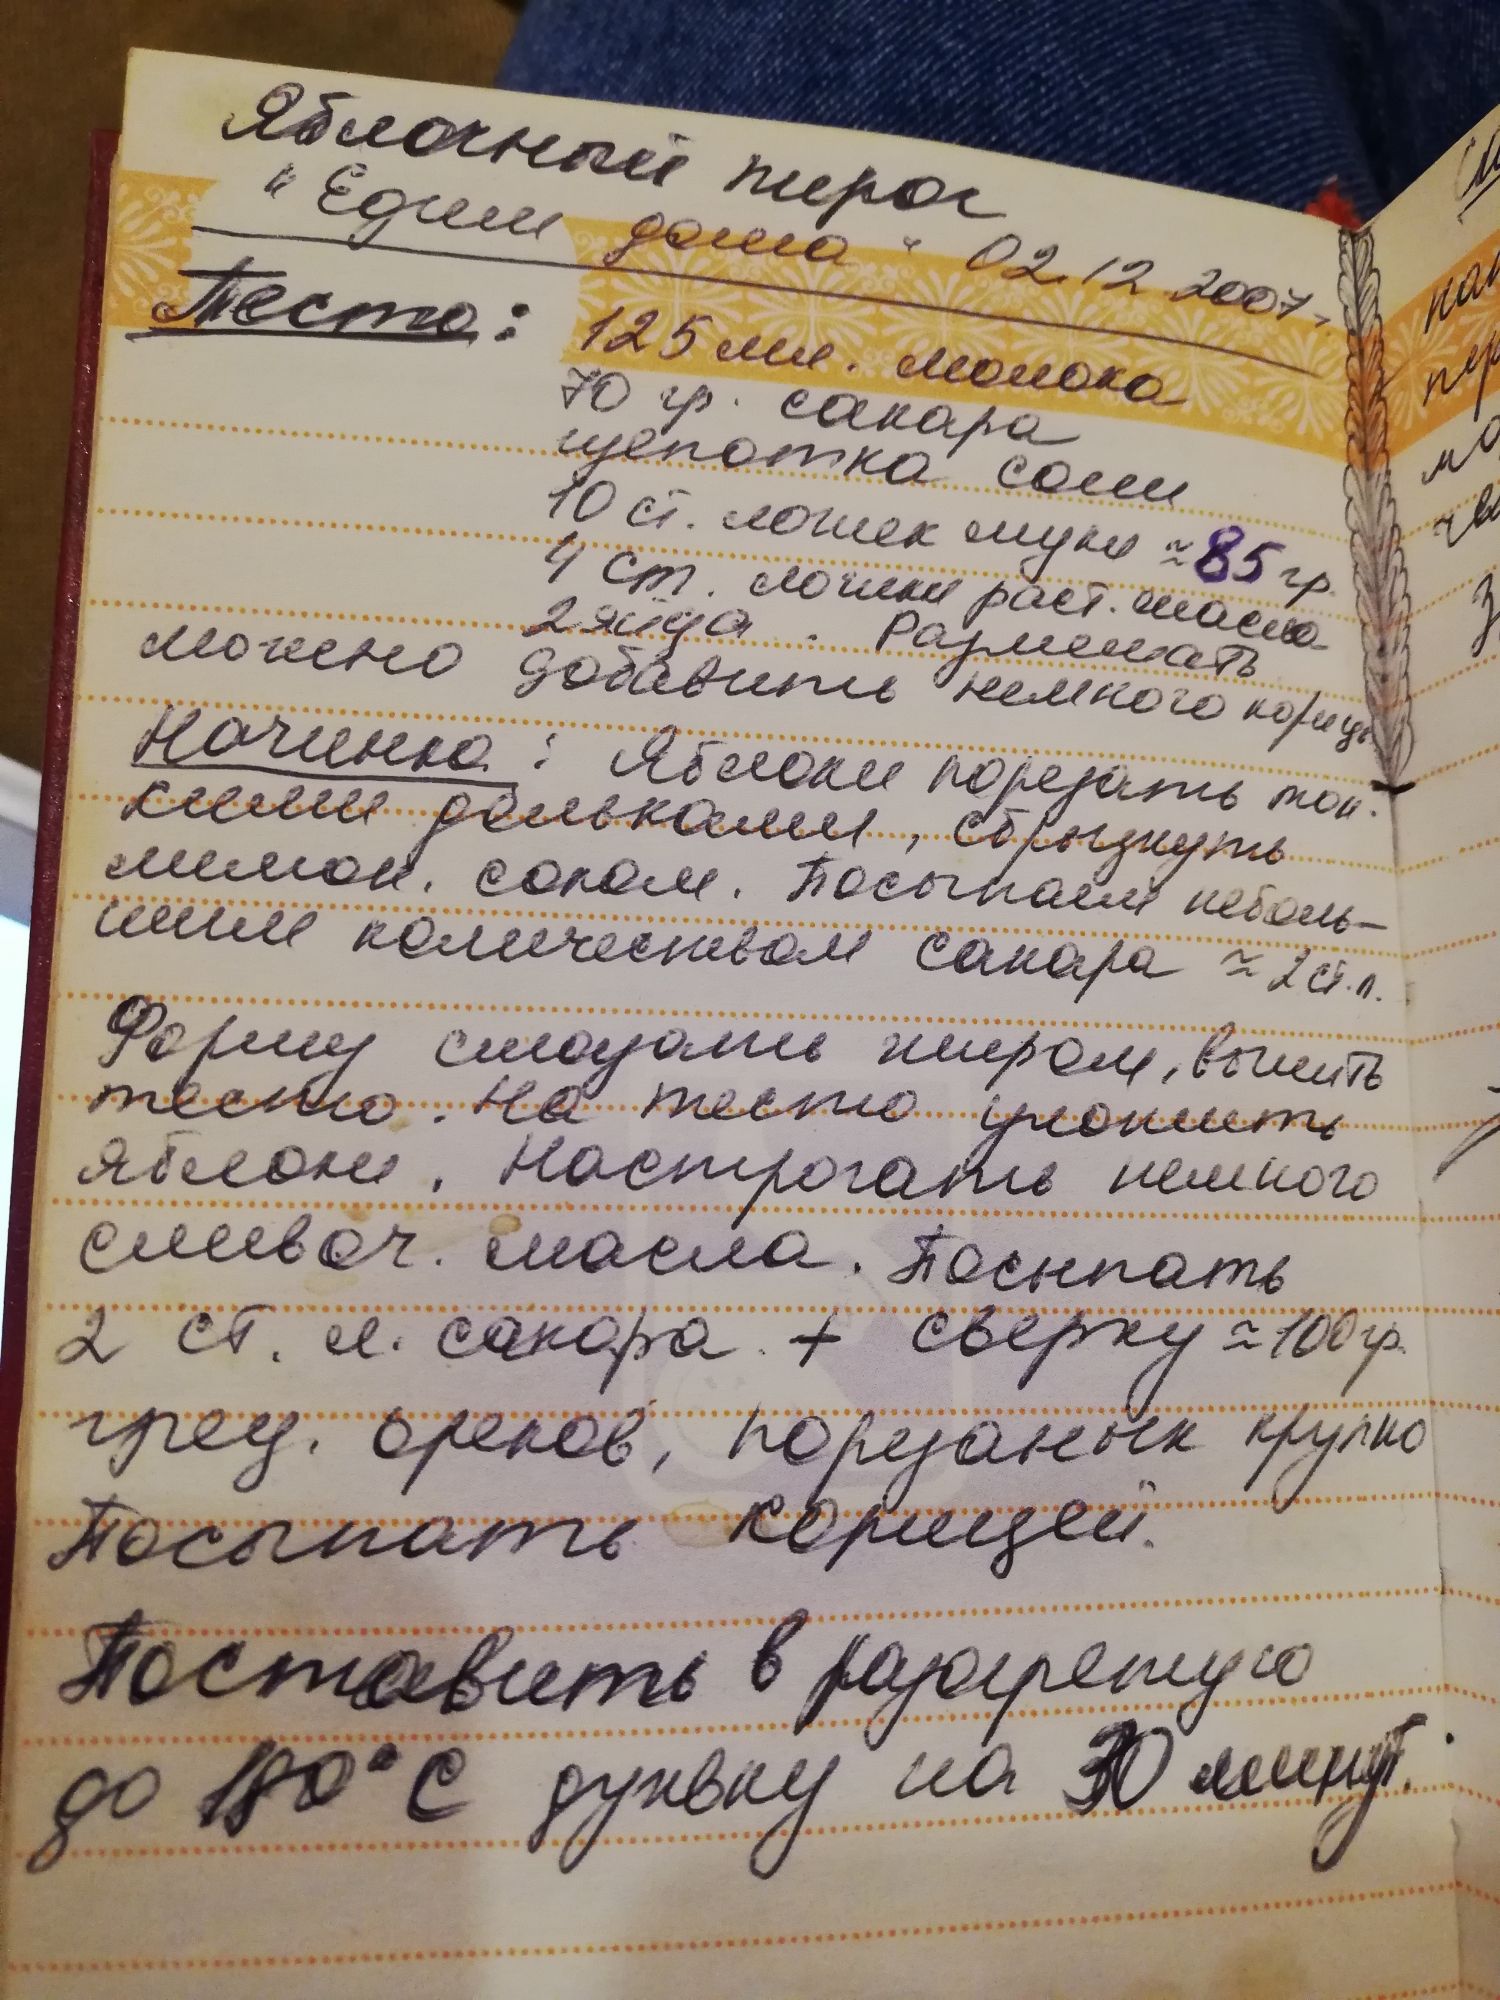 Яблочный пирог
"Едим дома" 02.12.2007г.
Тесто:
125 мл. молоко
70 гр. сахара
щепотка соли
10 ст. ложек муки ≈ 85 гр.
4 ст. ложки раст. масло
2 яйца. Размешать
можно добавить немного корицы
Начинка: Яблоки порезать тон-
кими дольками, сбрызнуть
лимон. соком. Посыпаем неболь-
шим количеством сахара ≈ 2 ст.л.
Форму смазать жиром, вылить
тесто. На тесто уложить
яблоки. Настрогать немного
сливоч. масла. Посыпать
2 ст. л. сахара + сверху ≈ 100 гр.
грец. орехов, порезаных крупно
Посыпать корицей.
Поставить в разогретую
до 180°С духовку на 30 минут.